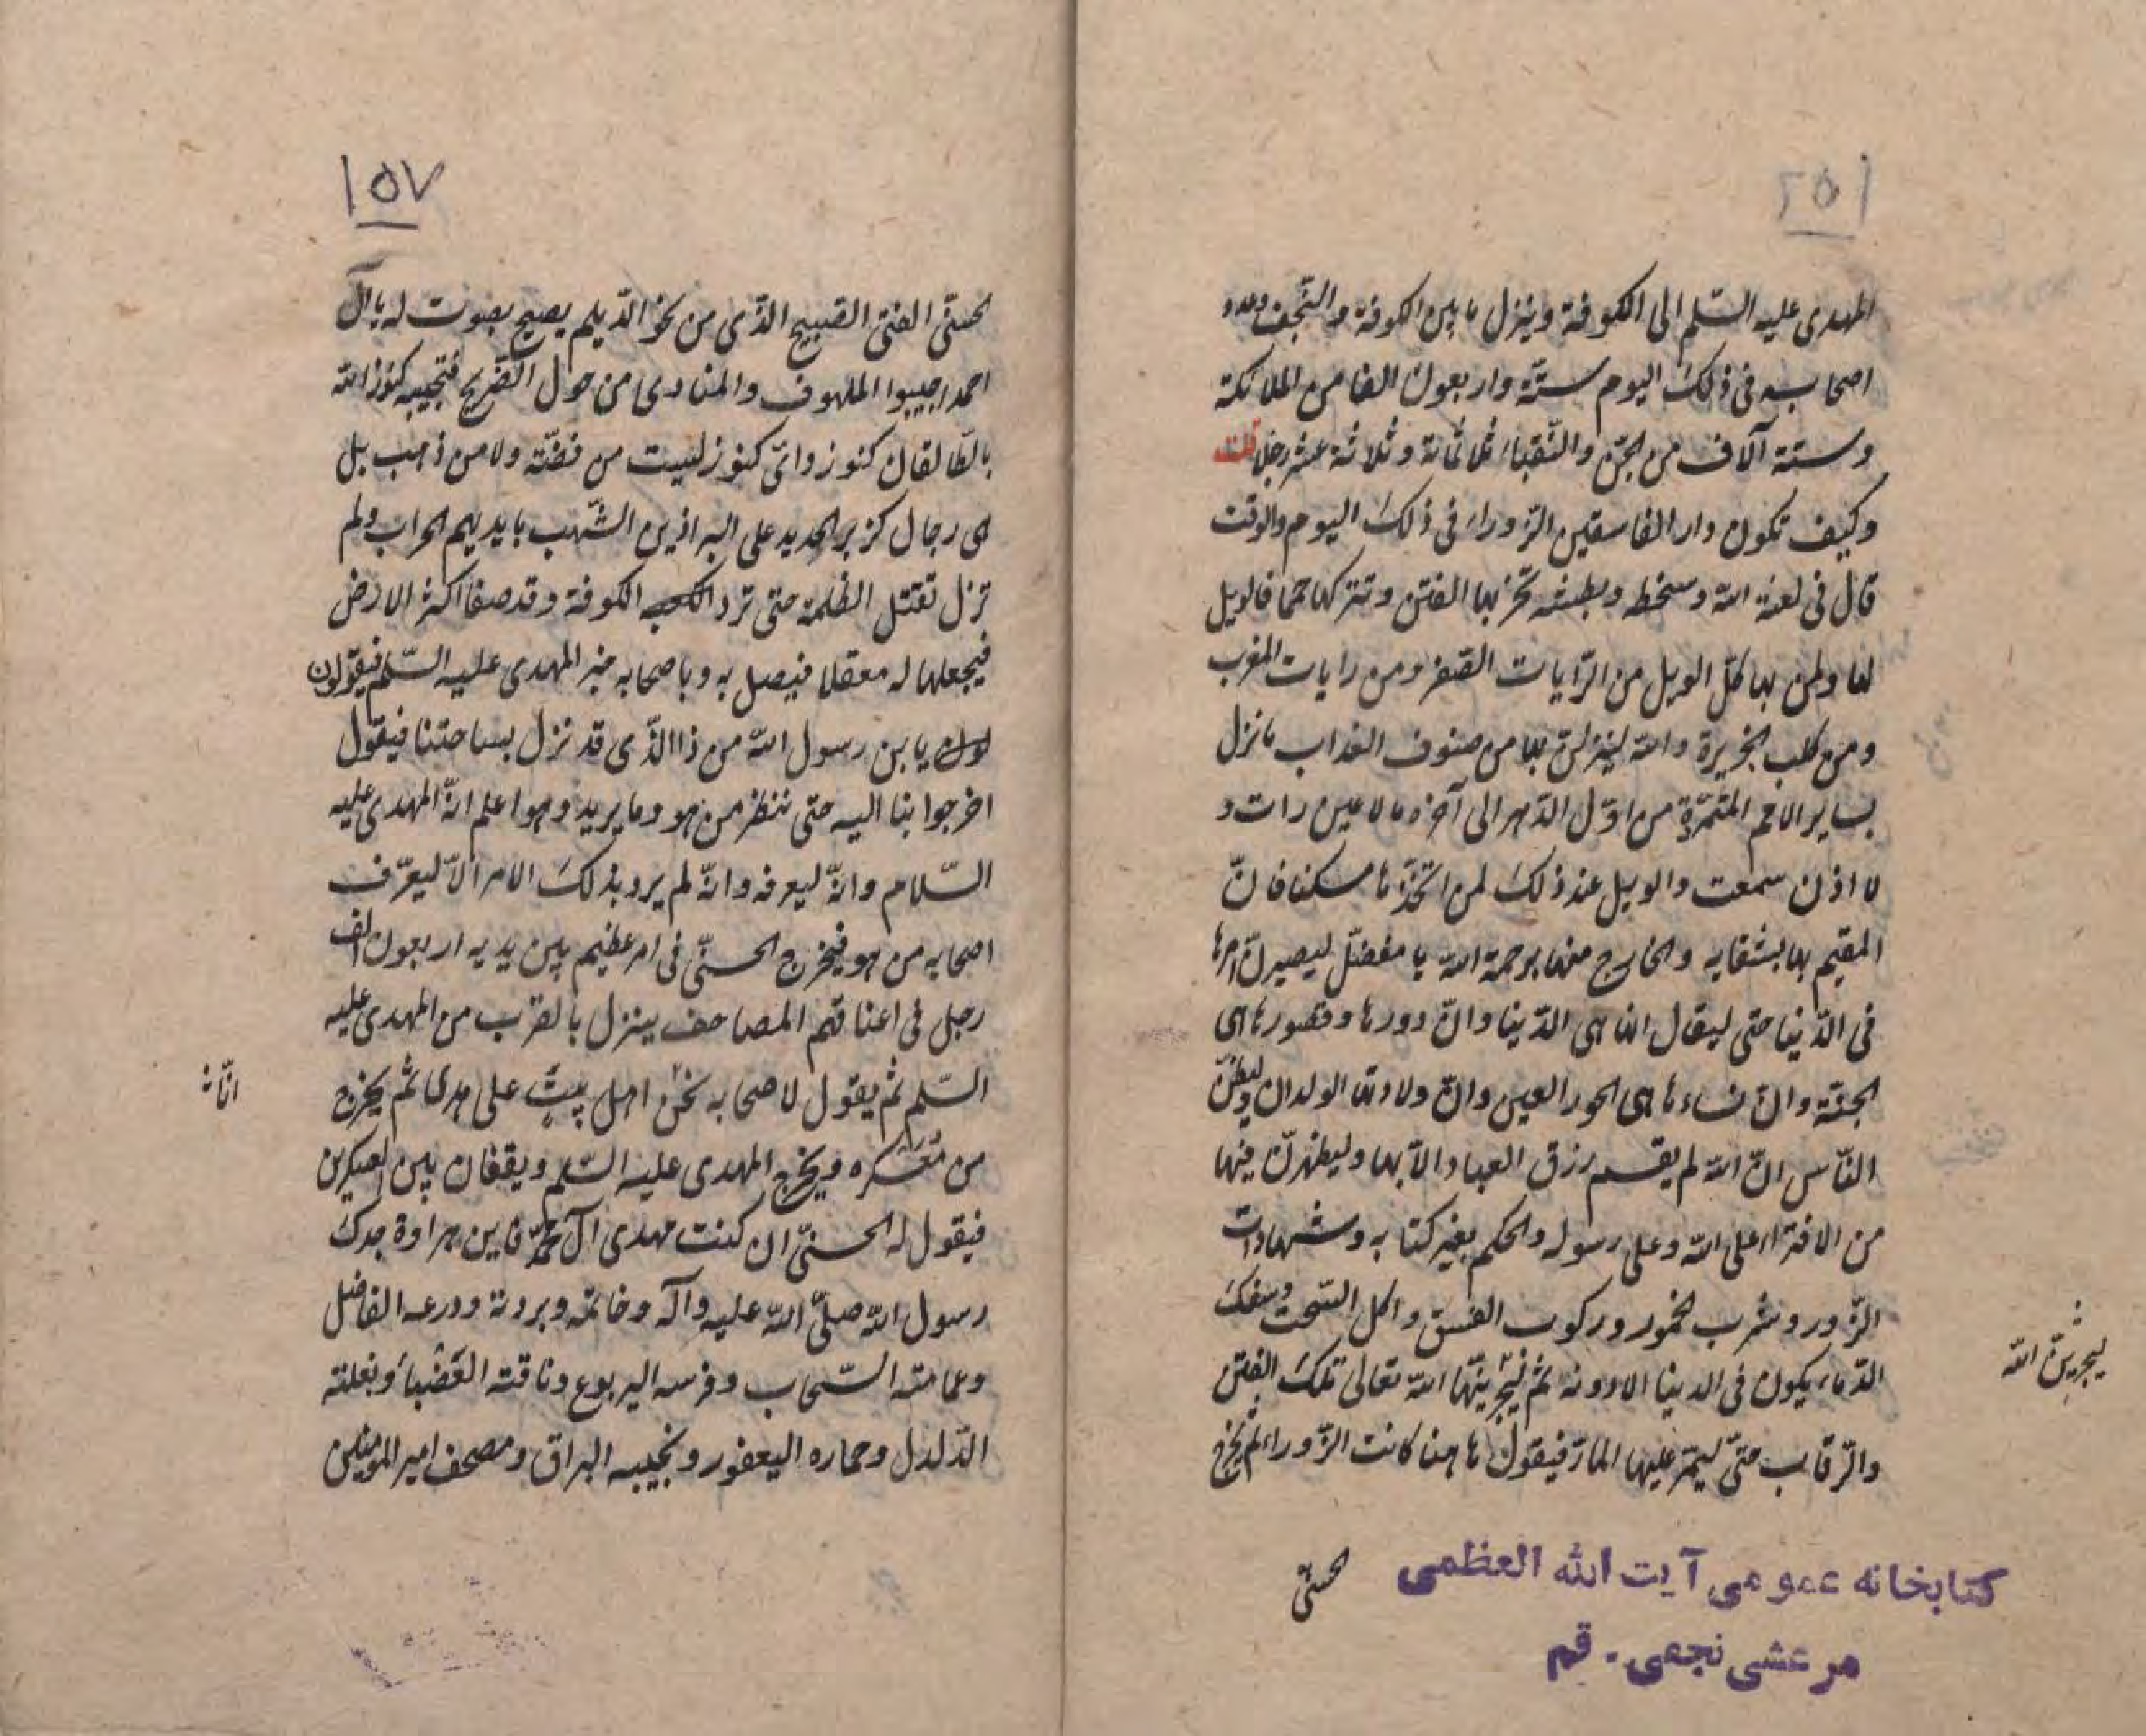 ٢٥١
المهدى عليه السّلم الى الكوفة وينزل ما بين الكوفة والنّجف وعدد
اصحابه فى ذلك اليوم ستّة واربعون الفا من الملائكة
وستة آلاف من الجنّ والنّقباء ثلاثمائة وثلاثة عشر رجلا قلت
وكيف تكون دار الفاسقين الزّوراء فى ذلك اليوم والوقت
قال فى لعنة الله وسخطه وبطشه تخربها الفتن وتتركها حمما فالويل
لها ولمن بها كلّ الويل من الرّايات الصّفر ومن رايات المغرب
ومن كلب الجزيرة والله لينزلنّ بها من صنوف العذاب ما نزل
بساير الامم المتمرّدة من اوّل الدّهر الى آخره ما لا عين رات و
لا اذن سمعت والويل عند ذلك لمن اتّخذها مسكنا فانّ
المقيم بها بشقايه والخارج منها برحمة الله يا مفضّل ليصيرنّ امرها
فى الدّنيا حتى ليقال انها هى الدّنيا وانّ دورها وقصورها هى
الجنّة وانّ نساءها هى الحور العين وانّ ولادتها الولدان وليظنّنّ
النّاس انّ الله لم يقسم رزق العباد الّا بها وليظهرنّ فيها
من الافتراء على الله وعلى رسوله والحكم بغير كتابه وشهادات
الزّور وشرب الخمور وركوب الفسق واكل السّحت وسفك
الدّماء يكون فى الدنيا الا دونه ثم ليخربنّها الله تعالى بتلك الفتن
ليخربنّ الله
والرّقاب حتّى ليمرّ عليها المارّ فيقول هاهنا كانت الزّوراء ثم يخرج
الحسنىّ
كتابخانه عمومى آيت الله العظمى
مرعشى نجفى - قم
١٥٧
الحسنّى الفتى الصّبيح الذّى من نحو الدّيلم يصيح بصوت له يا آل
احمد اجيبوا الملهوف والمنادى من حول الضّريح فتجيبه كنوز الله
بالطّالقان كنوز واىّ كنوز ليست من فضّة ولا من ذهب بل
هى رجال كزبر الحديد على البراذين الشّهب بايديهم الحراب ولم
تزل تقتل الظلمة حتى ترد الكوفة وقد صفا اكثر الارض
فيجعلها له معقلا فيصل به وباصحابه خبر المهدى عليه السّلم فيقولون
له يا بن رسول الله من ذا الذّى قد نزل بساحتنا فيقول
اخرجوا بنا اليه حتى ننظر من هو وما يريد وهو اعلم انّه المهدى عليه
السّلام وانّه ليعرفه وانّه لم يرد بذلك الامر الّا ليعرّف
اصحابه من هو فيخرج الحسنّى فى امر عظيم بين يديه اربعون الف
رجل فى اعناقهم المصاحف فينزل بالقرب من المهدى عليه
السّلم ثم يقول لاصحابه نحن اهل بيت على هدى ثم يخرج
من معسكره ويخرج المهدى عليه السّلم ويقفان بين العسكرين
فيقول له الحسنّى ان كنت مهدى آل محمّد فاين هراوة جدك
رسول الله صلّى الله عليه وآله وخاتمه وبردته ودرعه الفاضل
وعمامته السّحاب وفرسه اليربوع وناقته العَضْباء وبغلته
الدّلدل وحماره اليعفور ونجيبه البراق ومصحف امير المؤمنين